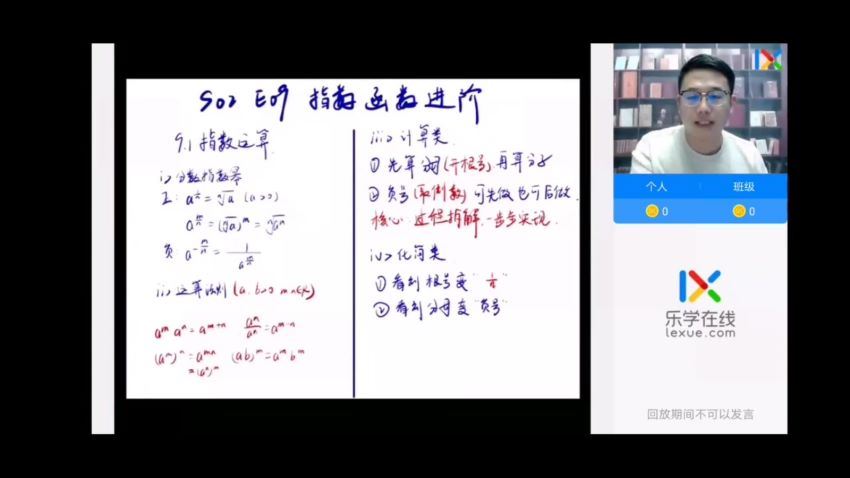 S02 E09 指数函数进阶
9.1 指数运算
i> 分数指数幂
正: a^{1/n} = ⁿ√a (a>0)
a^{m/n} = (ⁿ√a)^m = ⁿ√a^m
负 a^{-m/n} = 1/a^{m/n}
ii> 运算法则 (a.b>0 m.n∈R)
a^m a^n = a^{m+n} a^m/a^n = a^{m-n}
(a^m)^n = a^{mn} (ab)^m = a^m b^m
= (a^n)^m
iii> 计算类
① 先算分母(开根号) 再算分子
② 负号(取倒数) 可先做也可后做.
核心 过程拆解.一步步实现.
iv> 化简类
① 看到根号变 "1/n"
② 看到分母变 "负号"
个人 班级
0 0
乐学在线
lexue.com
回放期间不可以发言